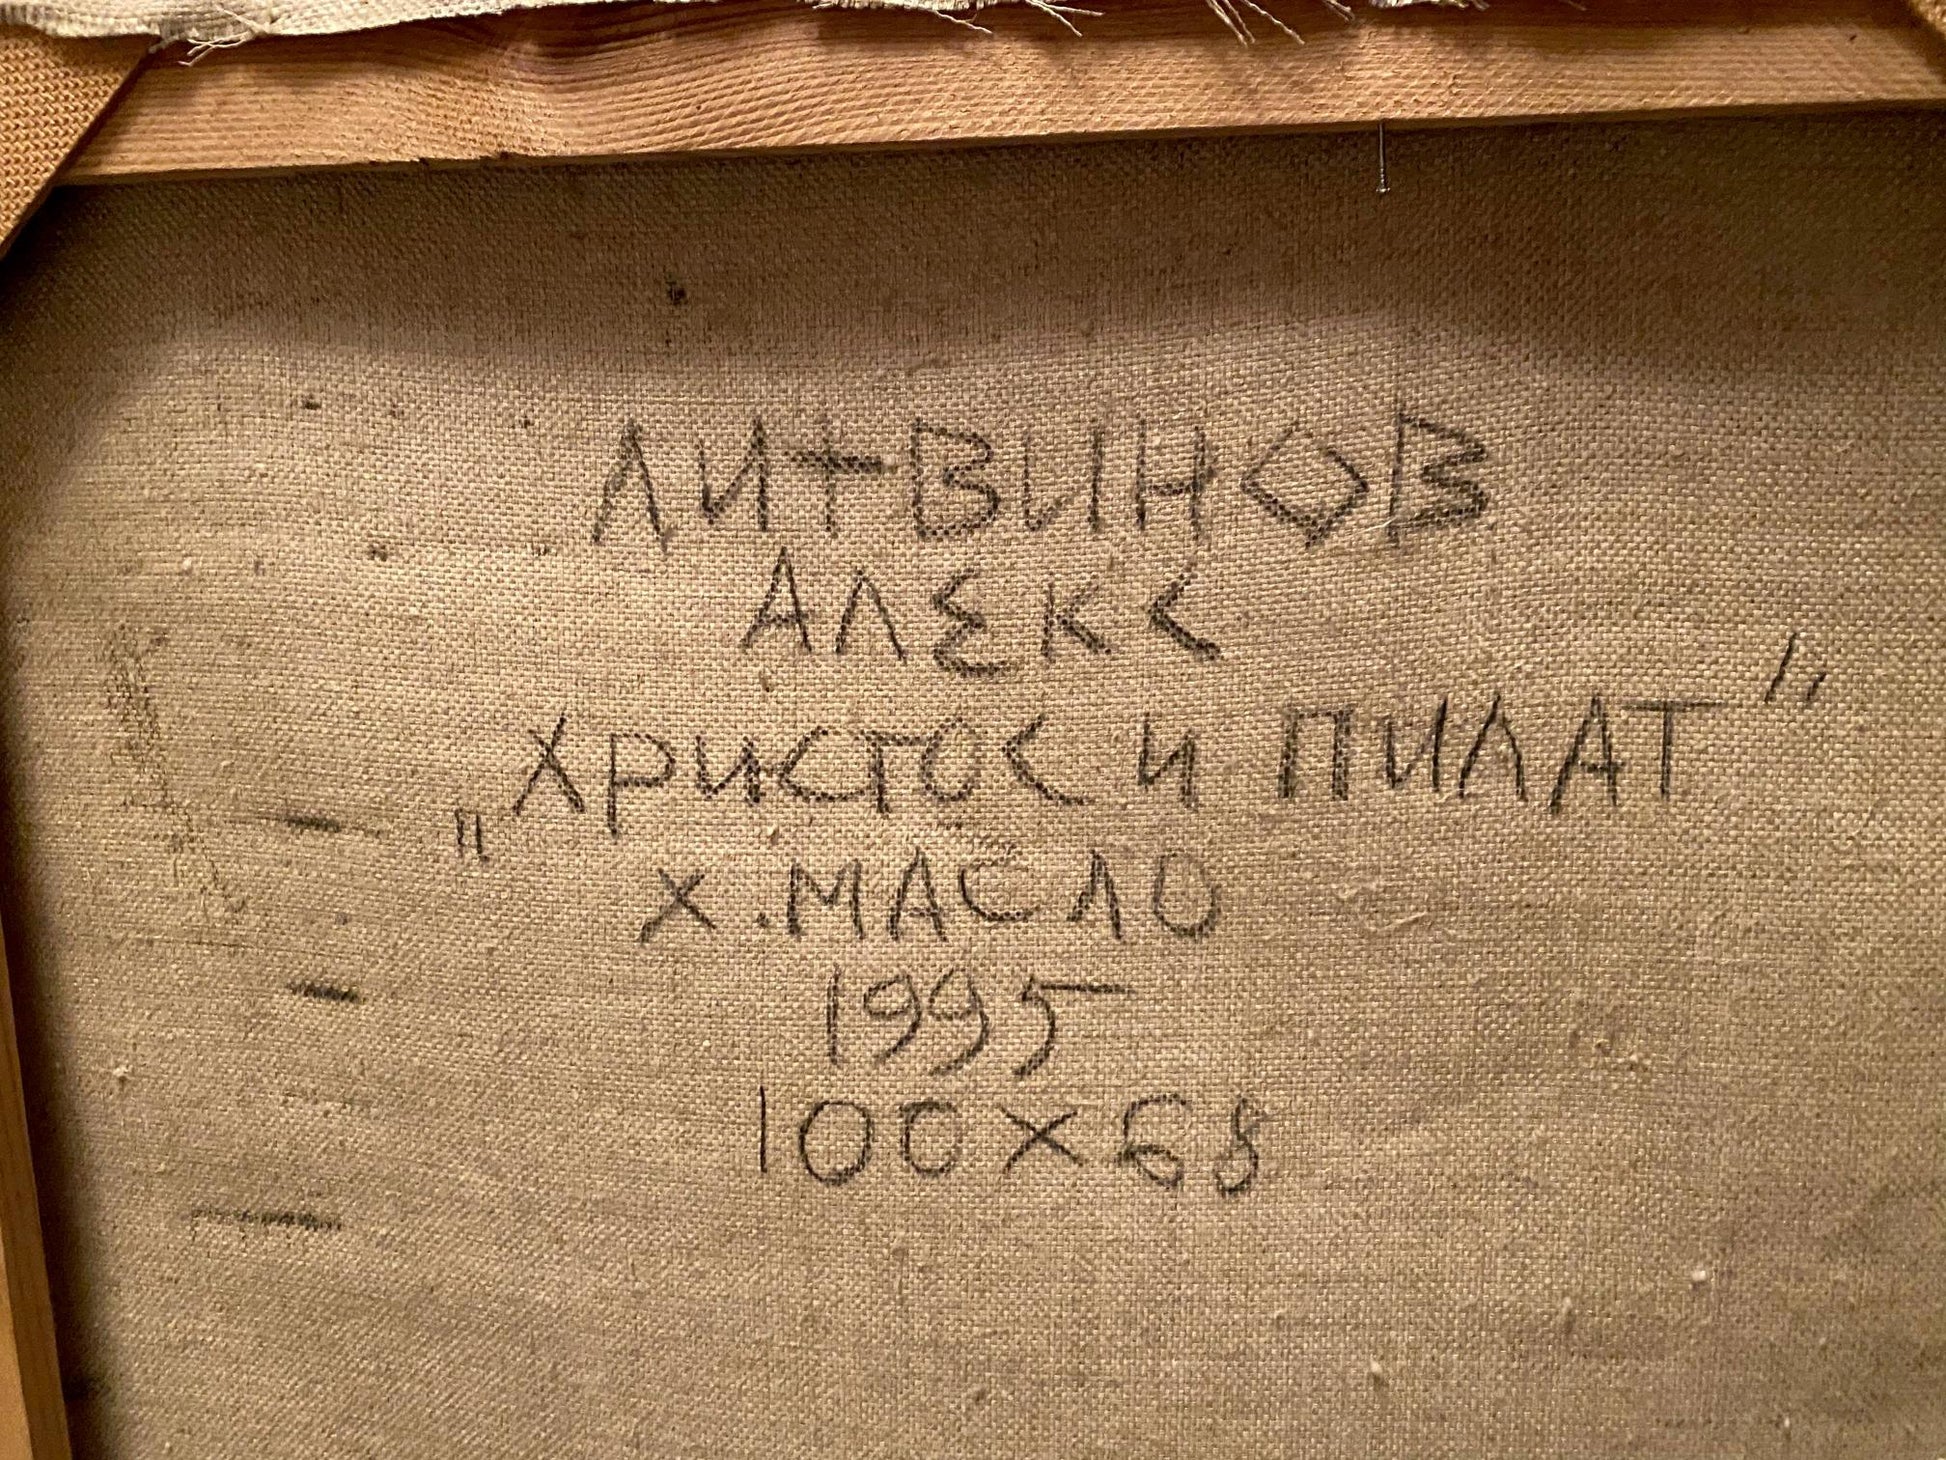 ЛИТВИНОВ
АЛЕКС
„ХРИСТОС И ПИЛАТ"
Х. МАСЛО
1995
100×68